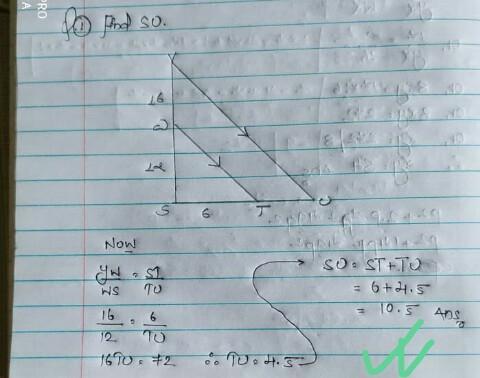 Q(1) Find SU.
Y
16
W
12
S 6 T U
Now
YW/WS = ST/TU
16/12 = 6/TU
16TU = 72 ∴ TU = 4.5
SU = ST + TU
= 6 + 4.5
= 10.5 Ans